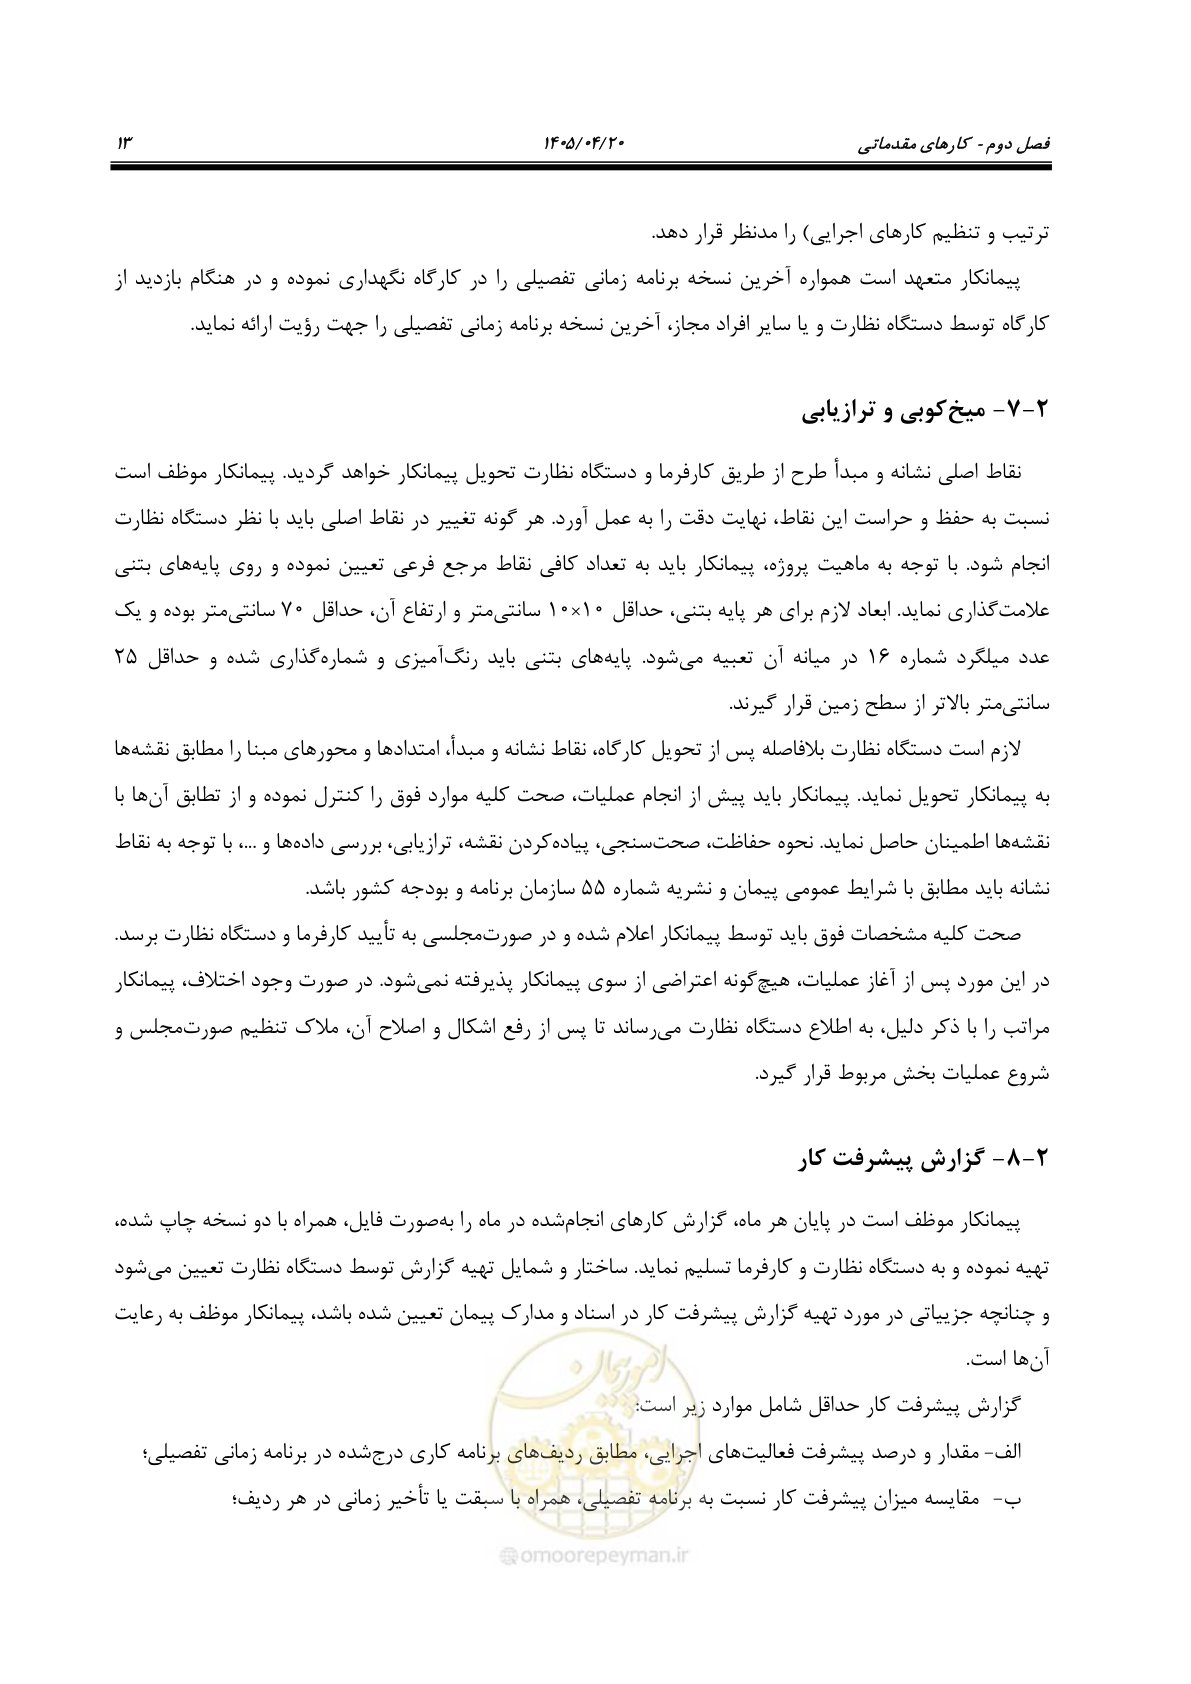 فصل دوم - کارهای مقدماتی ۱۴۰۵/۰۴/۲۰ ۱۳
ترتیب و تنظیم کارهای اجرایی) را مدنظر قرار دهد.
پیمانکار متعهد است همواره آخرین نسخه برنامه زمانی تفصیلی را در کارگاه نگهداری نموده و در هنگام بازدید از
کارگاه توسط دستگاه نظارت و یا سایر افراد مجاز، آخرین نسخه برنامه زمانی تفصیلی را جهت رؤیت ارائه نماید.
۲-۷- میخ‌کوبی و ترازیابی
نقاط اصلی نشانه و مبدأ طرح از طریق کارفرما و دستگاه نظارت تحویل پیمانکار خواهد گردید. پیمانکار موظف است
نسبت به حفظ و حراست این نقاط، نهایت دقت را به عمل آورد. هر گونه تغییر در نقاط اصلی باید با نظر دستگاه نظارت
انجام شود. با توجه به ماهیت پروژه، پیمانکار باید به تعداد کافی نقاط مرجع فرعی تعیین نموده و روی پایه‌های بتنی
علامت‌گذاری نماید. ابعاد لازم برای هر پایه بتنی، حداقل ۱۰×۱۰ سانتی‌متر و ارتفاع آن، حداقل ۷۰ سانتی‌متر بوده و یک
عدد میلگرد شماره ۱۶ در میانه آن تعبیه می‌شود. پایه‌های بتنی باید رنگ‌آمیزی و شماره‌گذاری شده و حداقل ۲۵
سانتی‌متر بالاتر از سطح زمین قرار گیرند.
لازم است دستگاه نظارت بلافاصله پس از تحویل کارگاه، نقاط نشانه و مبدأ، امتدادها و محورهای مبنا را مطابق نقشه‌ها
به پیمانکار تحویل نماید. پیمانکار باید پیش از انجام عملیات، صحت کلیه موارد فوق را کنترل نموده و از تطابق آن‌ها با
نقشه‌ها اطمینان حاصل نماید. نحوه حفاظت، صحت‌سنجی، پیاده‌کردن نقشه، ترازیابی، بررسی داده‌ها و ...، با توجه به نقاط
نشانه باید مطابق با شرایط عمومی پیمان و نشریه شماره ۵۵ سازمان برنامه و بودجه کشور باشد.
صحت کلیه مشخصات فوق باید توسط پیمانکار اعلام شده و در صورت‌مجلسی به تأیید کارفرما و دستگاه نظارت برسد.
در این مورد پس از آغاز عملیات، هیچ‌گونه اعتراضی از سوی پیمانکار پذیرفته نمی‌شود. در صورت وجود اختلاف، پیمانکار
مراتب را با ذکر دلیل، به اطلاع دستگاه نظارت می‌رساند تا پس از رفع اشکال و اصلاح آن، ملاک تنظیم صورت‌مجلس و
شروع عملیات بخش مربوط قرار گیرد.
۲-۸- گزارش پیشرفت کار
پیمانکار موظف است در پایان هر ماه، گزارش کارهای انجام‌شده در ماه را به‌صورت فایل، همراه با دو نسخه چاپ شده،
تهیه نموده و به دستگاه نظارت و کارفرما تسلیم نماید. ساختار و شمایل تهیه گزارش توسط دستگاه نظارت تعیین می‌شود
و چنانچه جزییاتی در مورد تهیه گزارش پیشرفت کار در اسناد و مدارک پیمان تعیین شده باشد، پیمانکار موظف به رعایت
آن‌ها است.
گزارش پیشرفت کار حداقل شامل موارد زیر است:
الف- مقدار و درصد پیشرفت فعالیت‌های اجرایی، مطابق ردیف‌های برنامه کاری درج‌شده در برنامه زمانی تفصیلی؛
ب- مقایسه میزان پیشرفت کار نسبت به برنامه تفصیلی، همراه با سبقت یا تأخیر زمانی در هر ردیف؛
امور پیمان
@omoorepeyman.ir